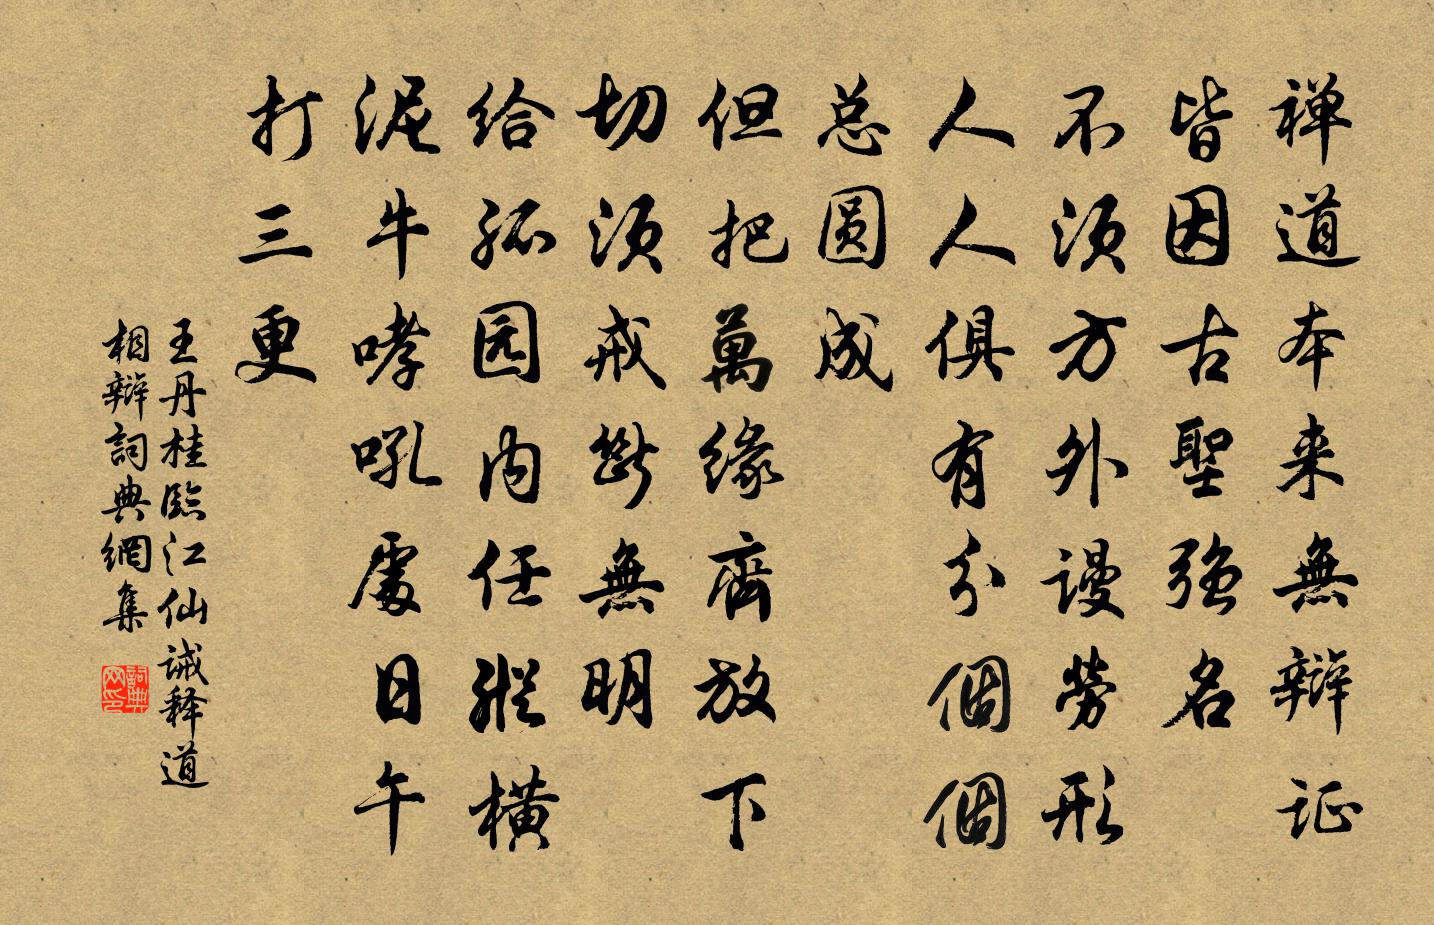 禅道本来無辯证
皆因古聖強名
不须方外謾勞形
人人俱有分個個
总圆成
但把萬缘齊放下
切须戒斷無明
给孤园内任縱横
泥牛哮吼處日午
打三更
王丹桂臨江仙诫释道
相辯詞典網集
詞典网印